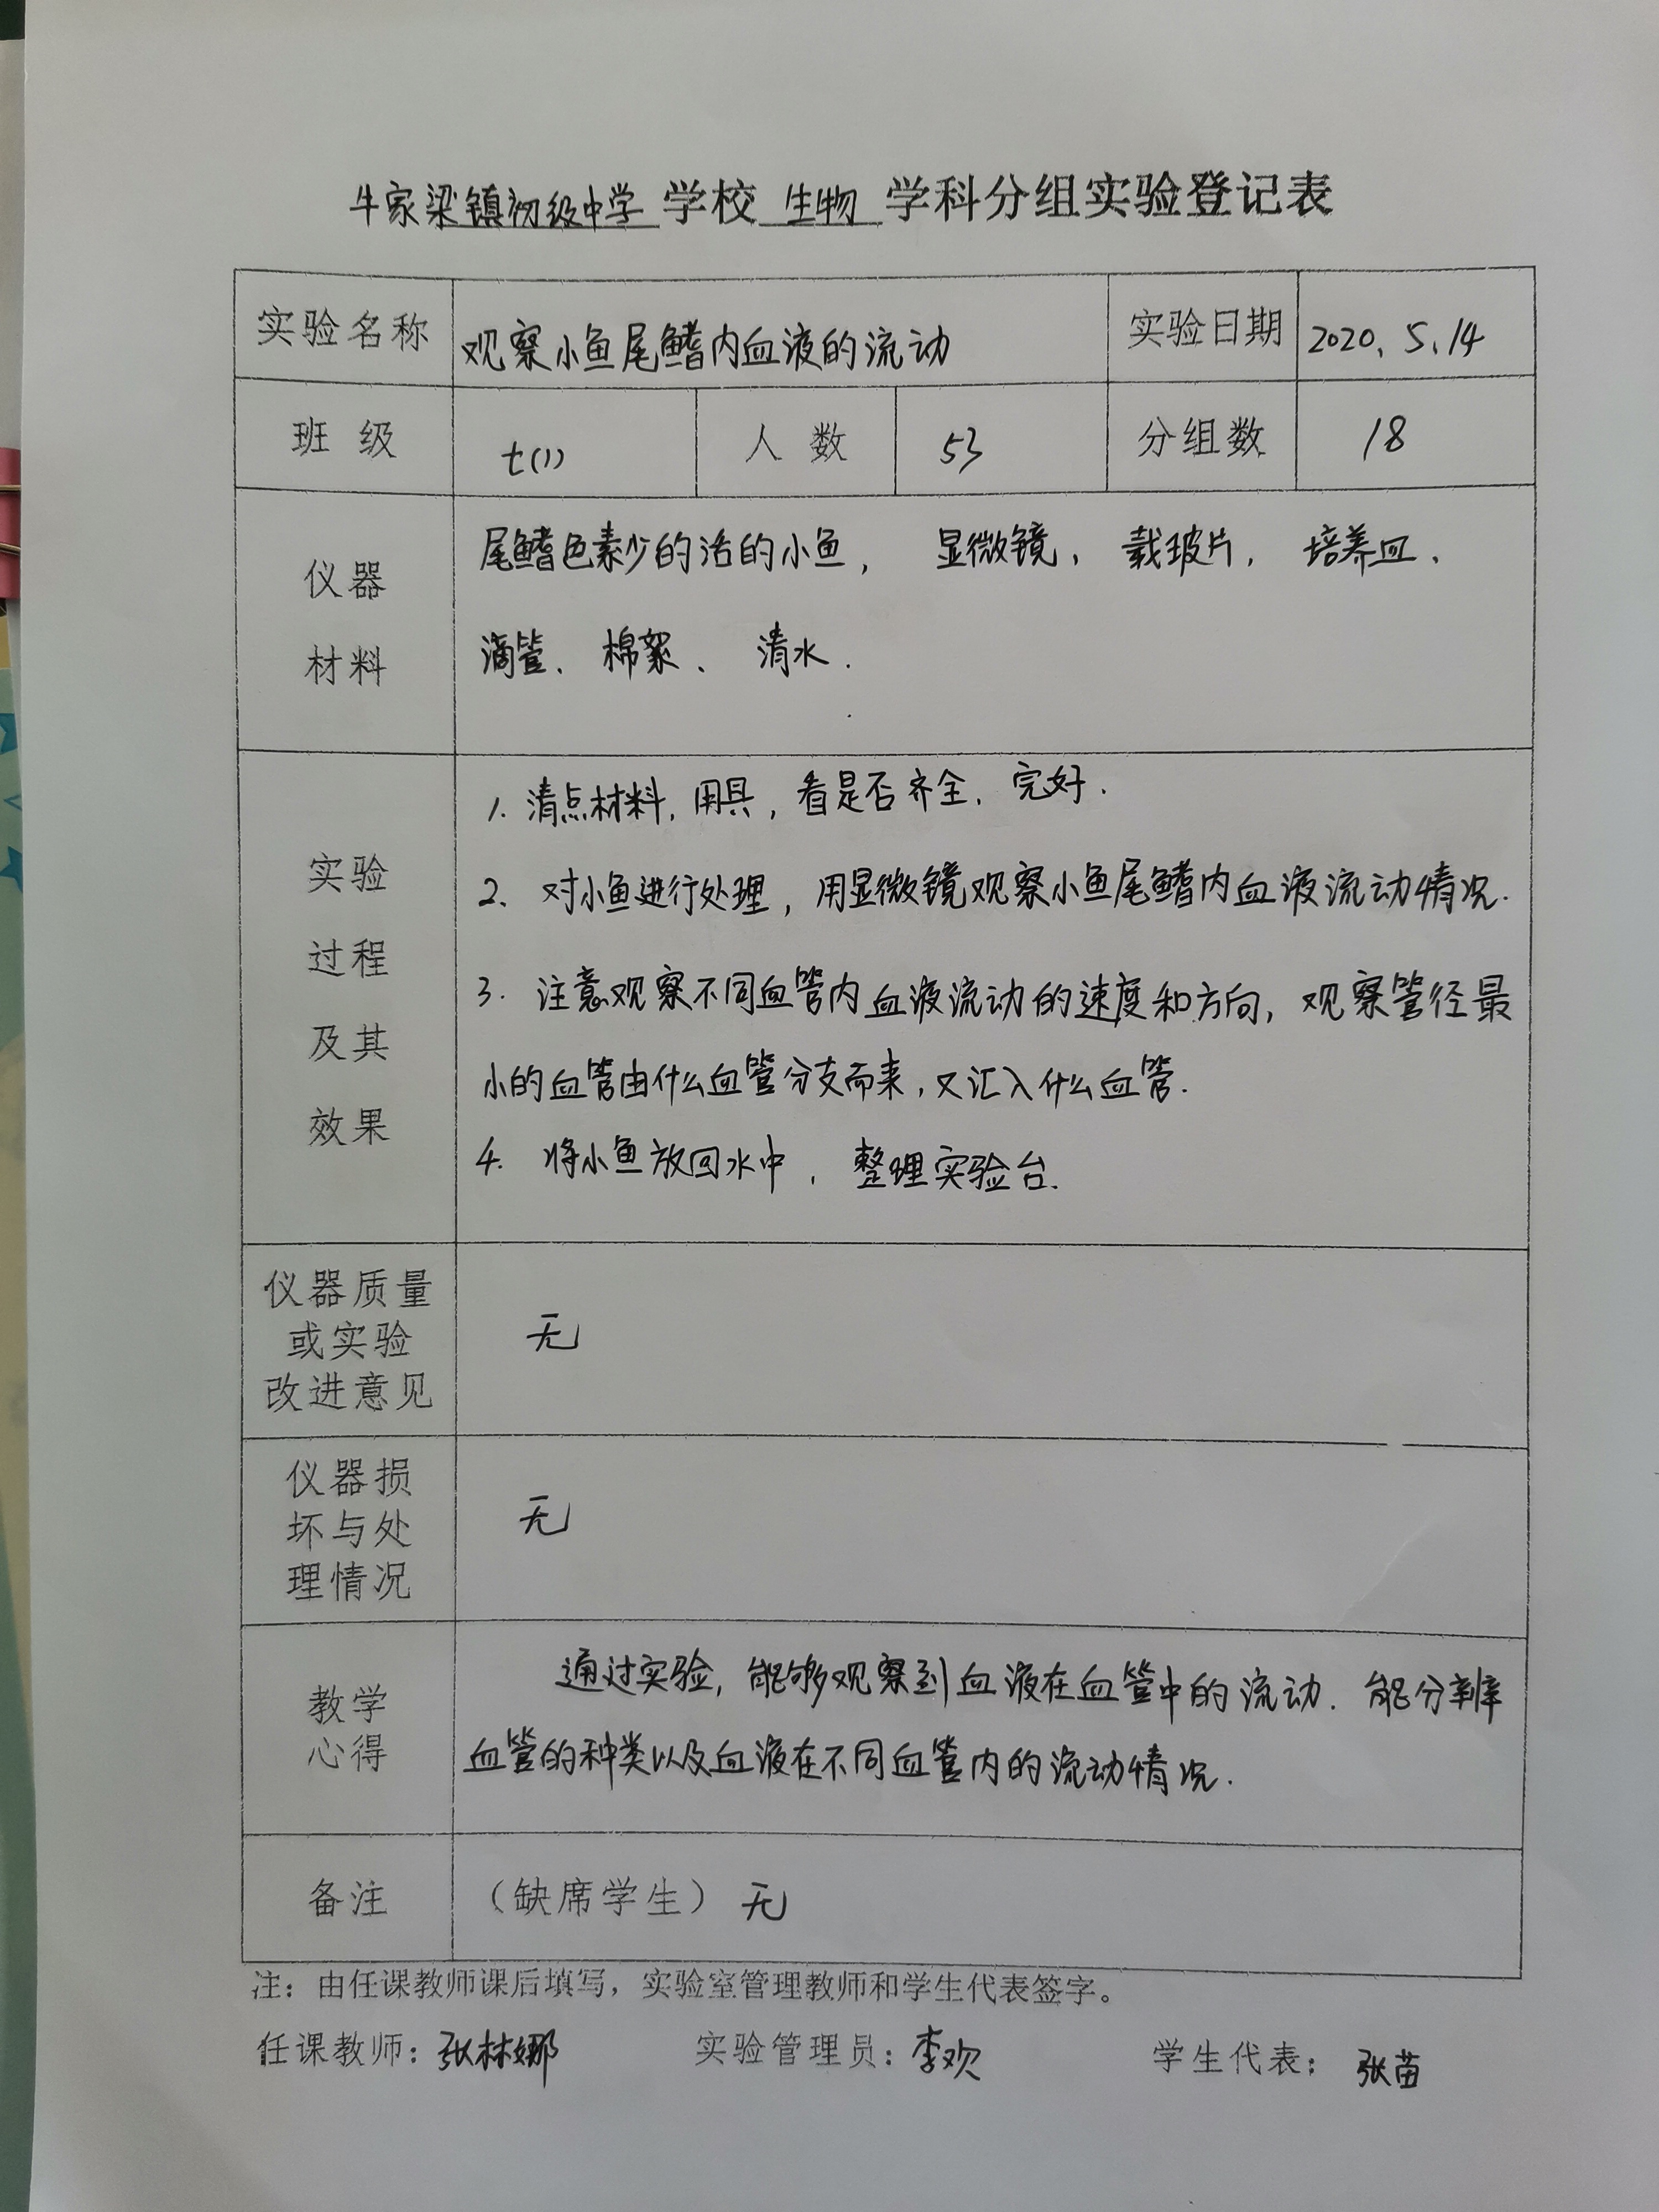 牛家梁镇初级中学 学校 生物 学科分组实验登记表
实验名称 观察小鱼尾鳍内血液的流动 实验日期 2020、5、14
班 级 七(1) 人 数 53 分组数 18
仪器
材料
尾鳍色素少的活的小鱼, 显微镜、 载玻片, 培养皿、
滴管、 棉絮、 清水.
实验
过程
及其
效果
1. 清点材料, 用具, 看是否齐全、完好.
2、 对小鱼进行处理, 用显微镜观察小鱼尾鳍内血液流动情况.
3. 注意观察不同血管内血液流动的速度和方向, 观察管径最
小的血管由什么血管分支而来, 又汇入什么血管.
4. 将小鱼放回水中, 整理实验台.
仪器质量
或实验
改进意见
无
仪器损
坏与处
理情况
无
教学
心得
通过实验, 能够观察到血液在血管中的流动. 能分辨
血管的种类以及血液在不同血管内的流动情况.
备注 (缺席学生) 无
注:由任课教师课后填写,实验室管理教师和学生代表签字。
任课教师:张林娜 实验管理员:李欢 学生代表: 张苗